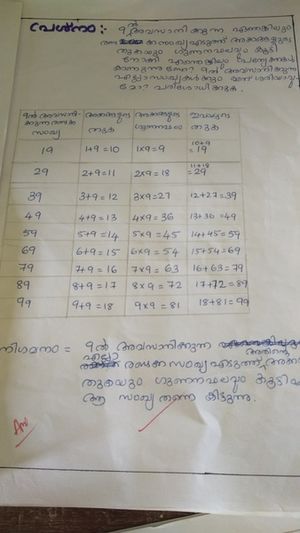 പ്രശ്നം:- 9ൽ അവസാനിക്കുന്ന ഏതെങ്കിലും
സംഖ്യ എടുത്ത് അക്കങ്ങളുടെ
തുകയും ഗുണനഫലവും കൂട്ടി
നോക്കി എന്തെങ്കിലും പ്രത്യേകത
കാണുന്നുണ്ടോ? 9ൽ അവസാനിക്കുന്ന
എല്ലാ സംഖ്യകൾക്കും ഇത് ശരിയാവു
മോ? പരിശോധിക്കുക.
9ൽ അവസാനി- അക്കങ്ങളുടെ അക്കങ്ങളുടെ ഇവയുടെ
ക്കുന്ന രണ്ടക്ക തുക ഗുണനഫലം തുക
സംഖ്യ
19 1+9=10 1×9=9 10+9=19
29 2+9=11 2×9=18 11+18=29
39 3+9=12 3×9=27 12+27=39
49 4+9=13 4×9=36 13+36=49
59 5+9=14 5×9=45 14+45=59
69 6+9=15 6×9=54 15+54=69
79 7+9=16 7×9=63 16+63=79
89 8+9=17 8×9=72 17+72=89
99 9+9=18 9×9=81 18+81=99
നിഗമനം = 9ൽ അവസാനിക്കുന്ന
എല്ലാ രണ്ടക്ക സംഖ്യ എടുത്ത് അതിന്റെ
തുകയും ഗുണനഫലവും കൂട്ടിയാ
ആ സംഖ്യ തന്നെ കിട്ടുന്നു.